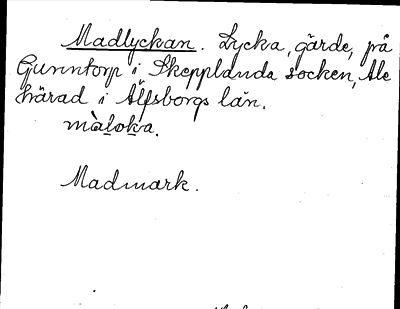 Madlyckan. Lycka, gärde, på
Gunntorp i Skepplanda socken, Ale
härad i Älfsborgs län.
màloka.
Madmark.